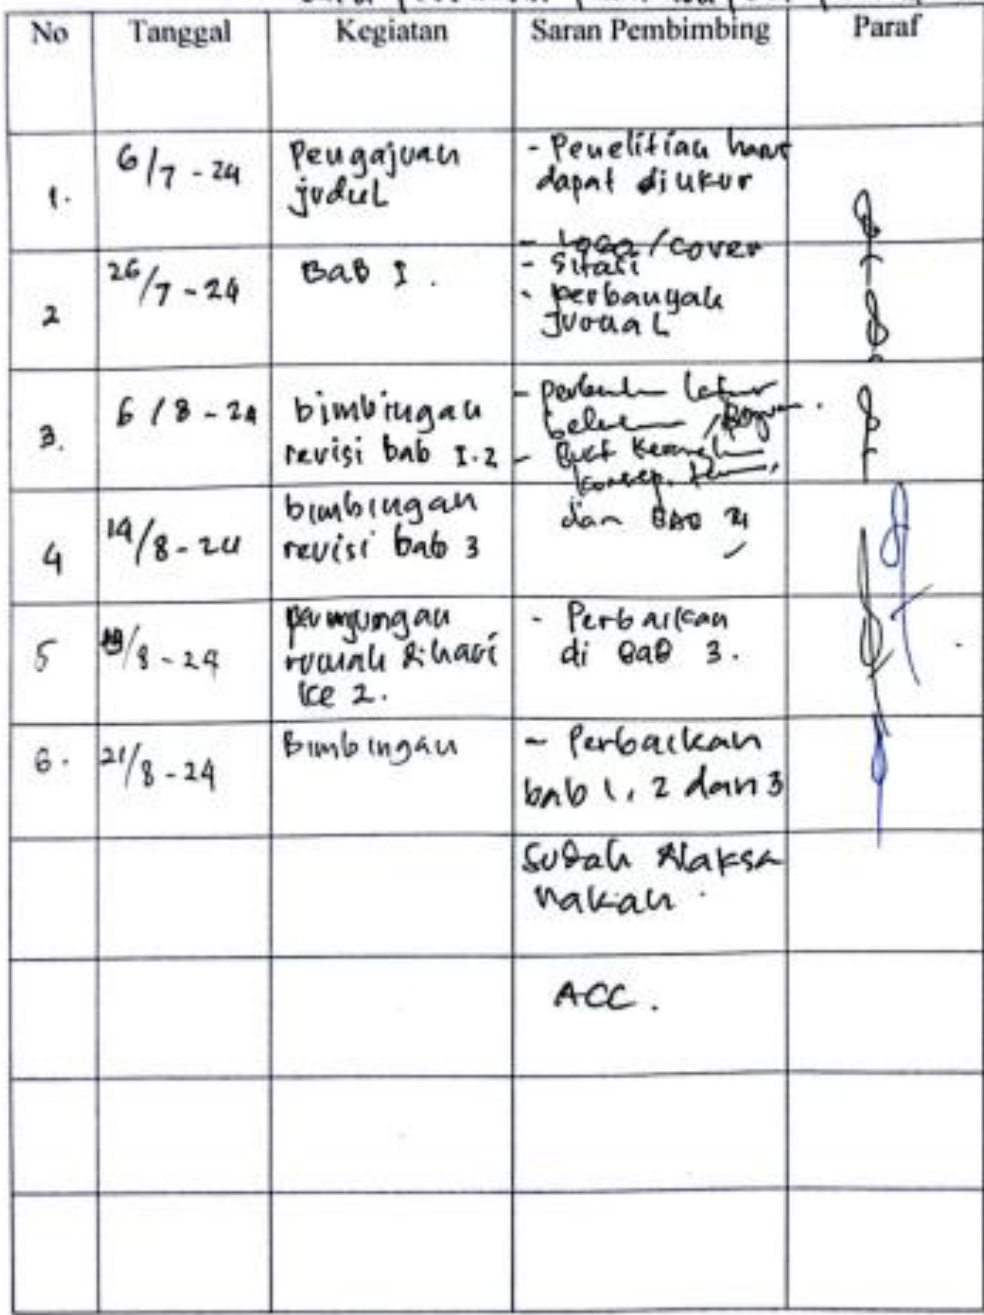 No Tanggal Kegiatan Saran Pembimbing Paraf
1. 6/7 - 24 Pengajuan judul - Penelitian harus dapat diukur
- Logo/cover
2 26/7 - 24 BAB I. - Sitasi
- perbanyak jurnal
3. 6/8 - 24 bimbingan revisi bab 1.2 -
4 14/8 - 24 bimbingan revisi bab 3 dan BAB
5 /8 - 24 rumah di hari ke 2. - Perbaikan di BAB 3.
6. 21/8 - 24 Bimbingan - Perbaikan bab 1, 2 dan 3
Sudah dilaksanakan.
ACC.